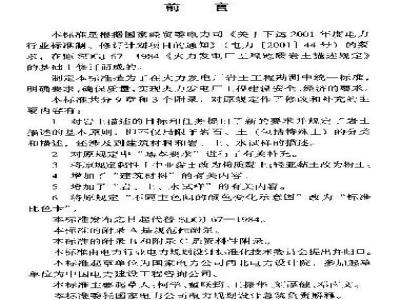 前 言
本标准是根据国家经贸委电力司《关于下达2001年度电力
行业标准制、修订计划项目的通知》（电力 [2001] 44号）的要
求，在原SDGJ 67—1984《火力发电厂工程地质岩土描述规定》
的基础上修订而成的。
制定本标准是为了在火力发电厂岩土工程勘测中统一标准，
明确要求，确保质量，实现火力发电厂工程建设安全、经济的要求。
本标准共分9章和3个附录，对原规定作了修改和补充的主
要内容有：
1 对岩土描述的目标和任务提出了新的要求并规定了岩土
描述的基本原则，即不仅局限于岩石、土（包括特殊土）的分类
和描述，还涉及到建筑材料和岩、土、水试样的描述。
2 对原规定中“基本要求”进行了有关补充。
3 将原规定黏性土中亚黏土改为粉质黏土，轻亚黏土改为粉土。
4 增加了“建筑材料”的有关内容。
5 增加了“岩、土、水试样”的有关内容。
6 将原规定“不同主色调的颜色变化示意图”改为“标准
比色卡”。
本标准发布之日起代替SDGJ 67—1984。
本标准的附录A是规范性附录。
本标准的附录B和附录C是资料性附录。
本标准由电力行业电力规划设计标准化技术委员会提出并归口。
本标准起草单位为国家电力公司西北电力设计院，参加起草
单位为中国电力建设工程咨询公司。
本标准主要起草人：
本标准委托国家电力公司电力规划设计总院负责解释。